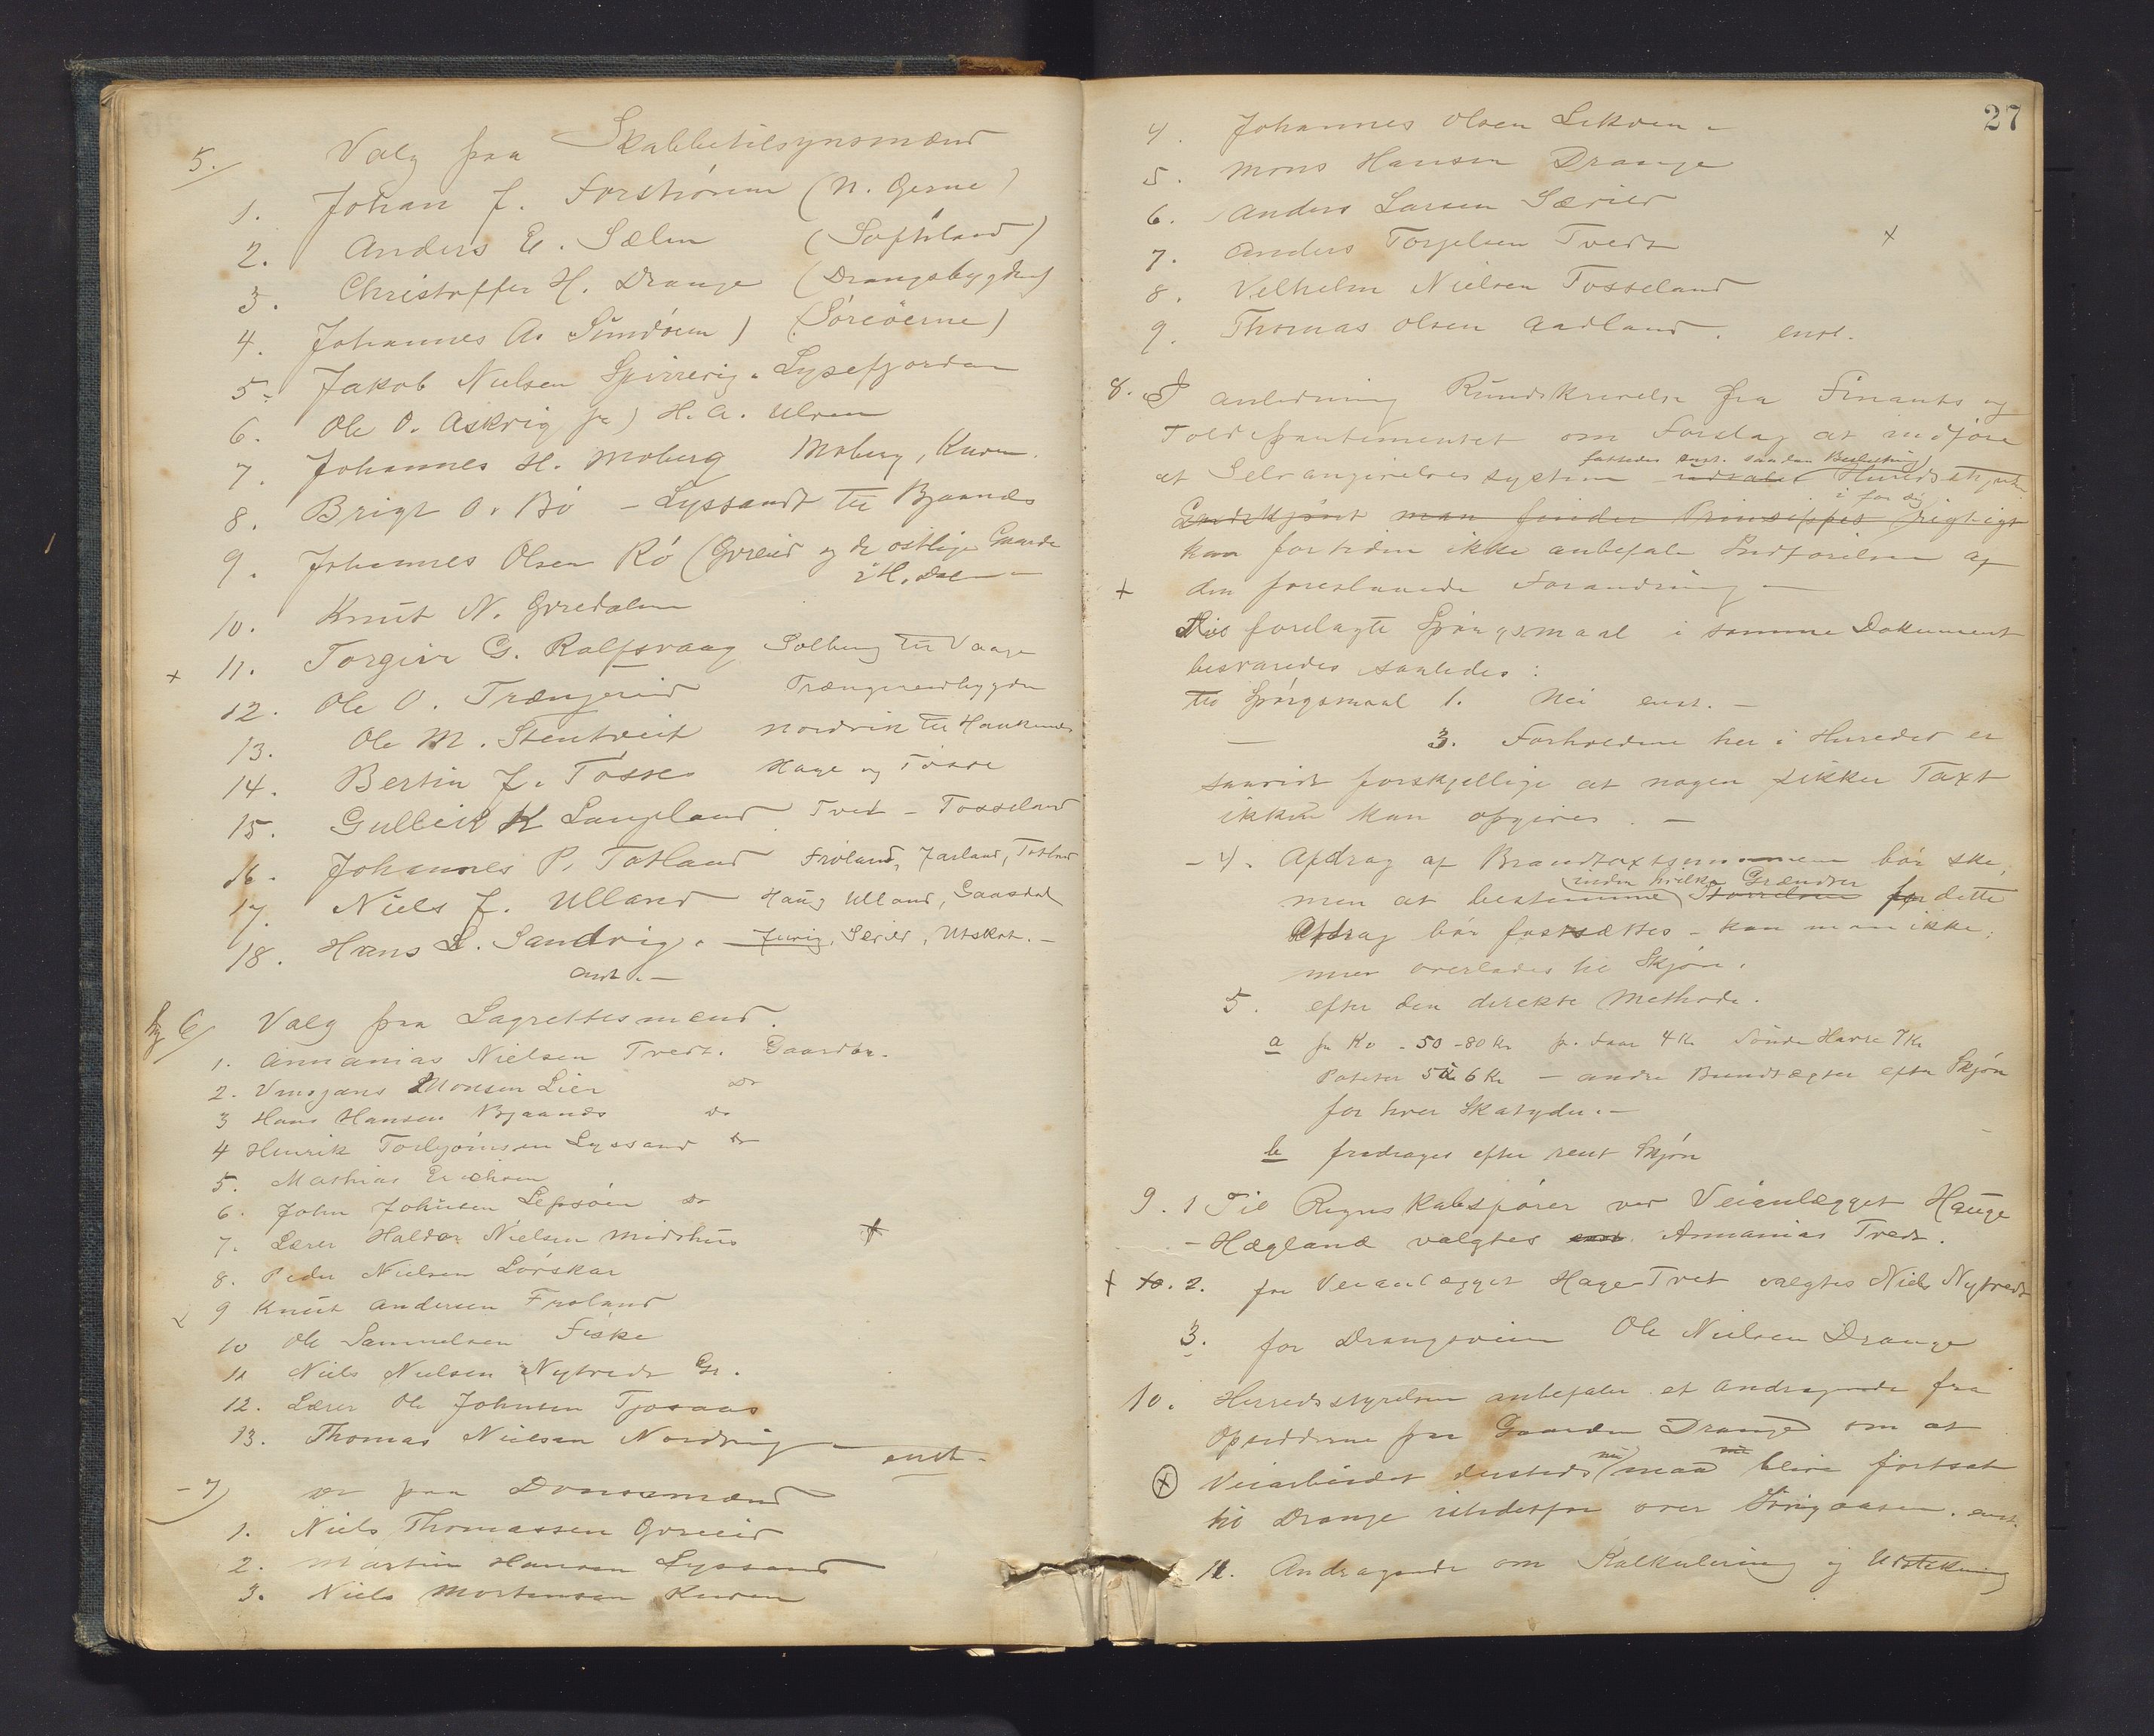 5. Valg paa Skabbetilsynsmænd
1. Johan J. Forstrønen (N. Øerne)
2. Anders E. Sælen (Søfteland)
3. Christoffer H. Drange (Drangsbygden)
4. Johannes A. Sundøen) (Søreöerne)
5. Jakob Nielsen Lysefjorden
6. Ole O. Askvig H. A. Ulven
7. Johannes H. Moberg Moberg, Kuven
8. Brigt O. Bö – Lyssandt til Bjaanæs
9. Johannes Olsen Rö (Gvreid og de östlige Gaarde
i H. dal –
10. Knut N. Gvredalen
+ 11. Torgeir G. Rolfsvaag Solberg til Vaage
12. Ole O. Trængereid Trængereidbygden
13. Ole M. Stentveit Nordvik til Haukenæs
14. Bertin J. Tösse Hage og Tösse
15. Gulleik K Langeland Tved – Tosseland
16. Johannes P. Tøtland Fröland, Jarland, Tøtland
17. Niels J. Ulland Haug Ulland, Gaasdal
18. Hans L. Sandvig. – Særvold, Utskot. –
enst. –
6/ Valg paa Lagrettesmænd.
1. Annanias Nielsen Tvedt. Gaardbr.
2. Monsen Lien Do
3 Hans Hansen Bjaanæs do
4 Henrik Torbjörnsen Lyssand do
5. Mathias Erichsen
6. John Johnsen Lepsöen do
7. Lærer Haldor Nielsen Midthus +
8. Peder Nielsen Lörskar
9 Knut Andersen Fröland
10 Ole Samuelsen Fiske
11 Niels Nielsen Nytvedt Gr.
12. Lærer Ole Johnsen Tjosaas
13. Thomas Nielsen Nordvig –
enst. –
– 7) do paa Domsmænd
1. Niels Thomassen Gvreid
2. Martin Hansen Lyssand
3. Niels Mortensen Kuven
27
4. Johannes Olsen Lekven –
5. Mons Hansen Drange
6. Anders Larsen Særvold
7. Anders Torjelsen Tvedt +
8. Velhelm Nielsen Tosseland
9. Thomas Olsen Aadland. enst.
8. I anledning Rundskrivelse fra Finants og
Tolddepartementet om Forslag at indföre
fattedes enst. saadan Beslutning
et Selvangivelsessystem udtaler Herredsstyret
i for sig
Endskjönt man finder Prinsippet rigtigt
kan for tiden ikke anbefale Indförelsen af
+ den foreslaaede Forandring –
De forelagte Spörgsmaal i samme Dokument
besvaredes saaledes:
til Spörgsmaal 1. Nei enst. –
— 3. Forholdene her i Herredet er
saavidt forskjellige at nogen sikker Taxt
ikke kan opgives. –
– 4. Afdrag af Brandtaxtsummen bör ske,
inden hvilke Grændser
men at bestemme Störrelsen for dette
Afdrag bör fastsættes – kan man ikke,
men overlades til Skjön.
5. efter den direkte Methode.
a pr Ko – 50 – 80 Kr pr. Faar 4 Kr Tönde Havre 7 Kr
Poteter 5 à 6 Kr – andre Bundvægter efter Skjön
for hver Skatyder. –
b fradrages efter rent Skjön
9. 1 Til Regnskabsförer ved Veianlægget Hauge
– Hægland valgtes enst. Annanias Tvedt.
+ 10. 2. for Veianlægget Hage-Tvet valgtes Niels Nytvedt
3. for Drangsveien Ole Nielsen Drange
10. Herredsstyrelsen anbefaler et Andragende fra
Opsidderne paa Gaarden Drange om at
nu nu
+ Veiarbeidet dersteds maa blive fortsat
til Drange istedetfor over . enst.
11. Andragende om Kalkulering og Udstikning